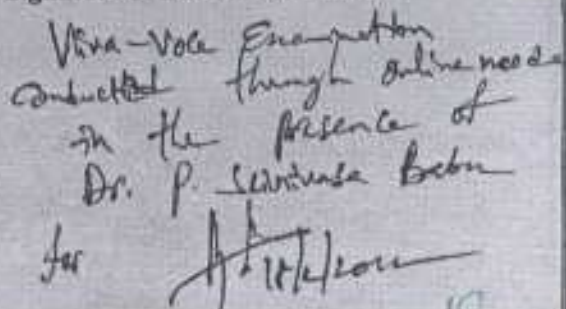 Viva-Voce Examination
conducted through online mode
in the presence of
Dr. P. Srinivasa Babu
for